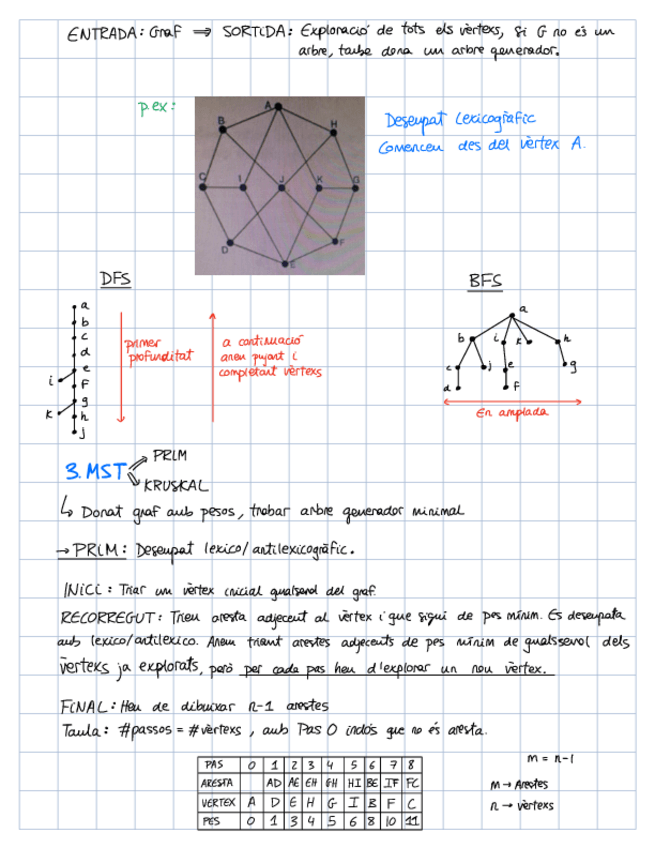 ENTRADA: Graf ⇒ SORTIDA: Exploració de tots els vèrtexs, si G no és un
arbre, també dona un arbre generador.
p.ex:
A
B
H
C
I
J
K
G
D
F
E
Desempat Lexicogràfic
Comencem des del vèrtex A.
DFS
a
b
c
d
e
i
f
g
k
h
j
primer
profunditat
a continuació
anem pujant i
completant vèrtexs
BFS
a
b
i
k
h
c
j
e
g
d
f
En amplada
3. MST
PRIM
KRUSKAL
↳ Donat graf amb pesos, trobar arbre generador minimal
→ PRIM: Desempat lexico/antilexicogràfic.
INICI: Triar un vèrtex inicial qualsevol del graf
RECORREGUT: Triem aresta adjacent al vèrtex i que sigui de pes mínim. Es desempata
amb lexico/antilexico. Anem triant arestes adjacents de pes mínim de qualssevol dels
vèrtexs ja explorats, però per cada pas hem d'explorar un nou vèrtex.
FINAL: Hem de dibuixar n-1 arestes
Taula: #passos = #vèrtexs, amb Pas 0 inclòs que no és aresta.
PAS 0 1 2 3 4 5 6 7 8
ARESTA AD AE EH GH HI BE IF FC
VÈRTEX A D E H G I B F C
PES 0 1 3 4 5 6 8 10 11
m = n-1
m → Arestes
n → vèrtexs